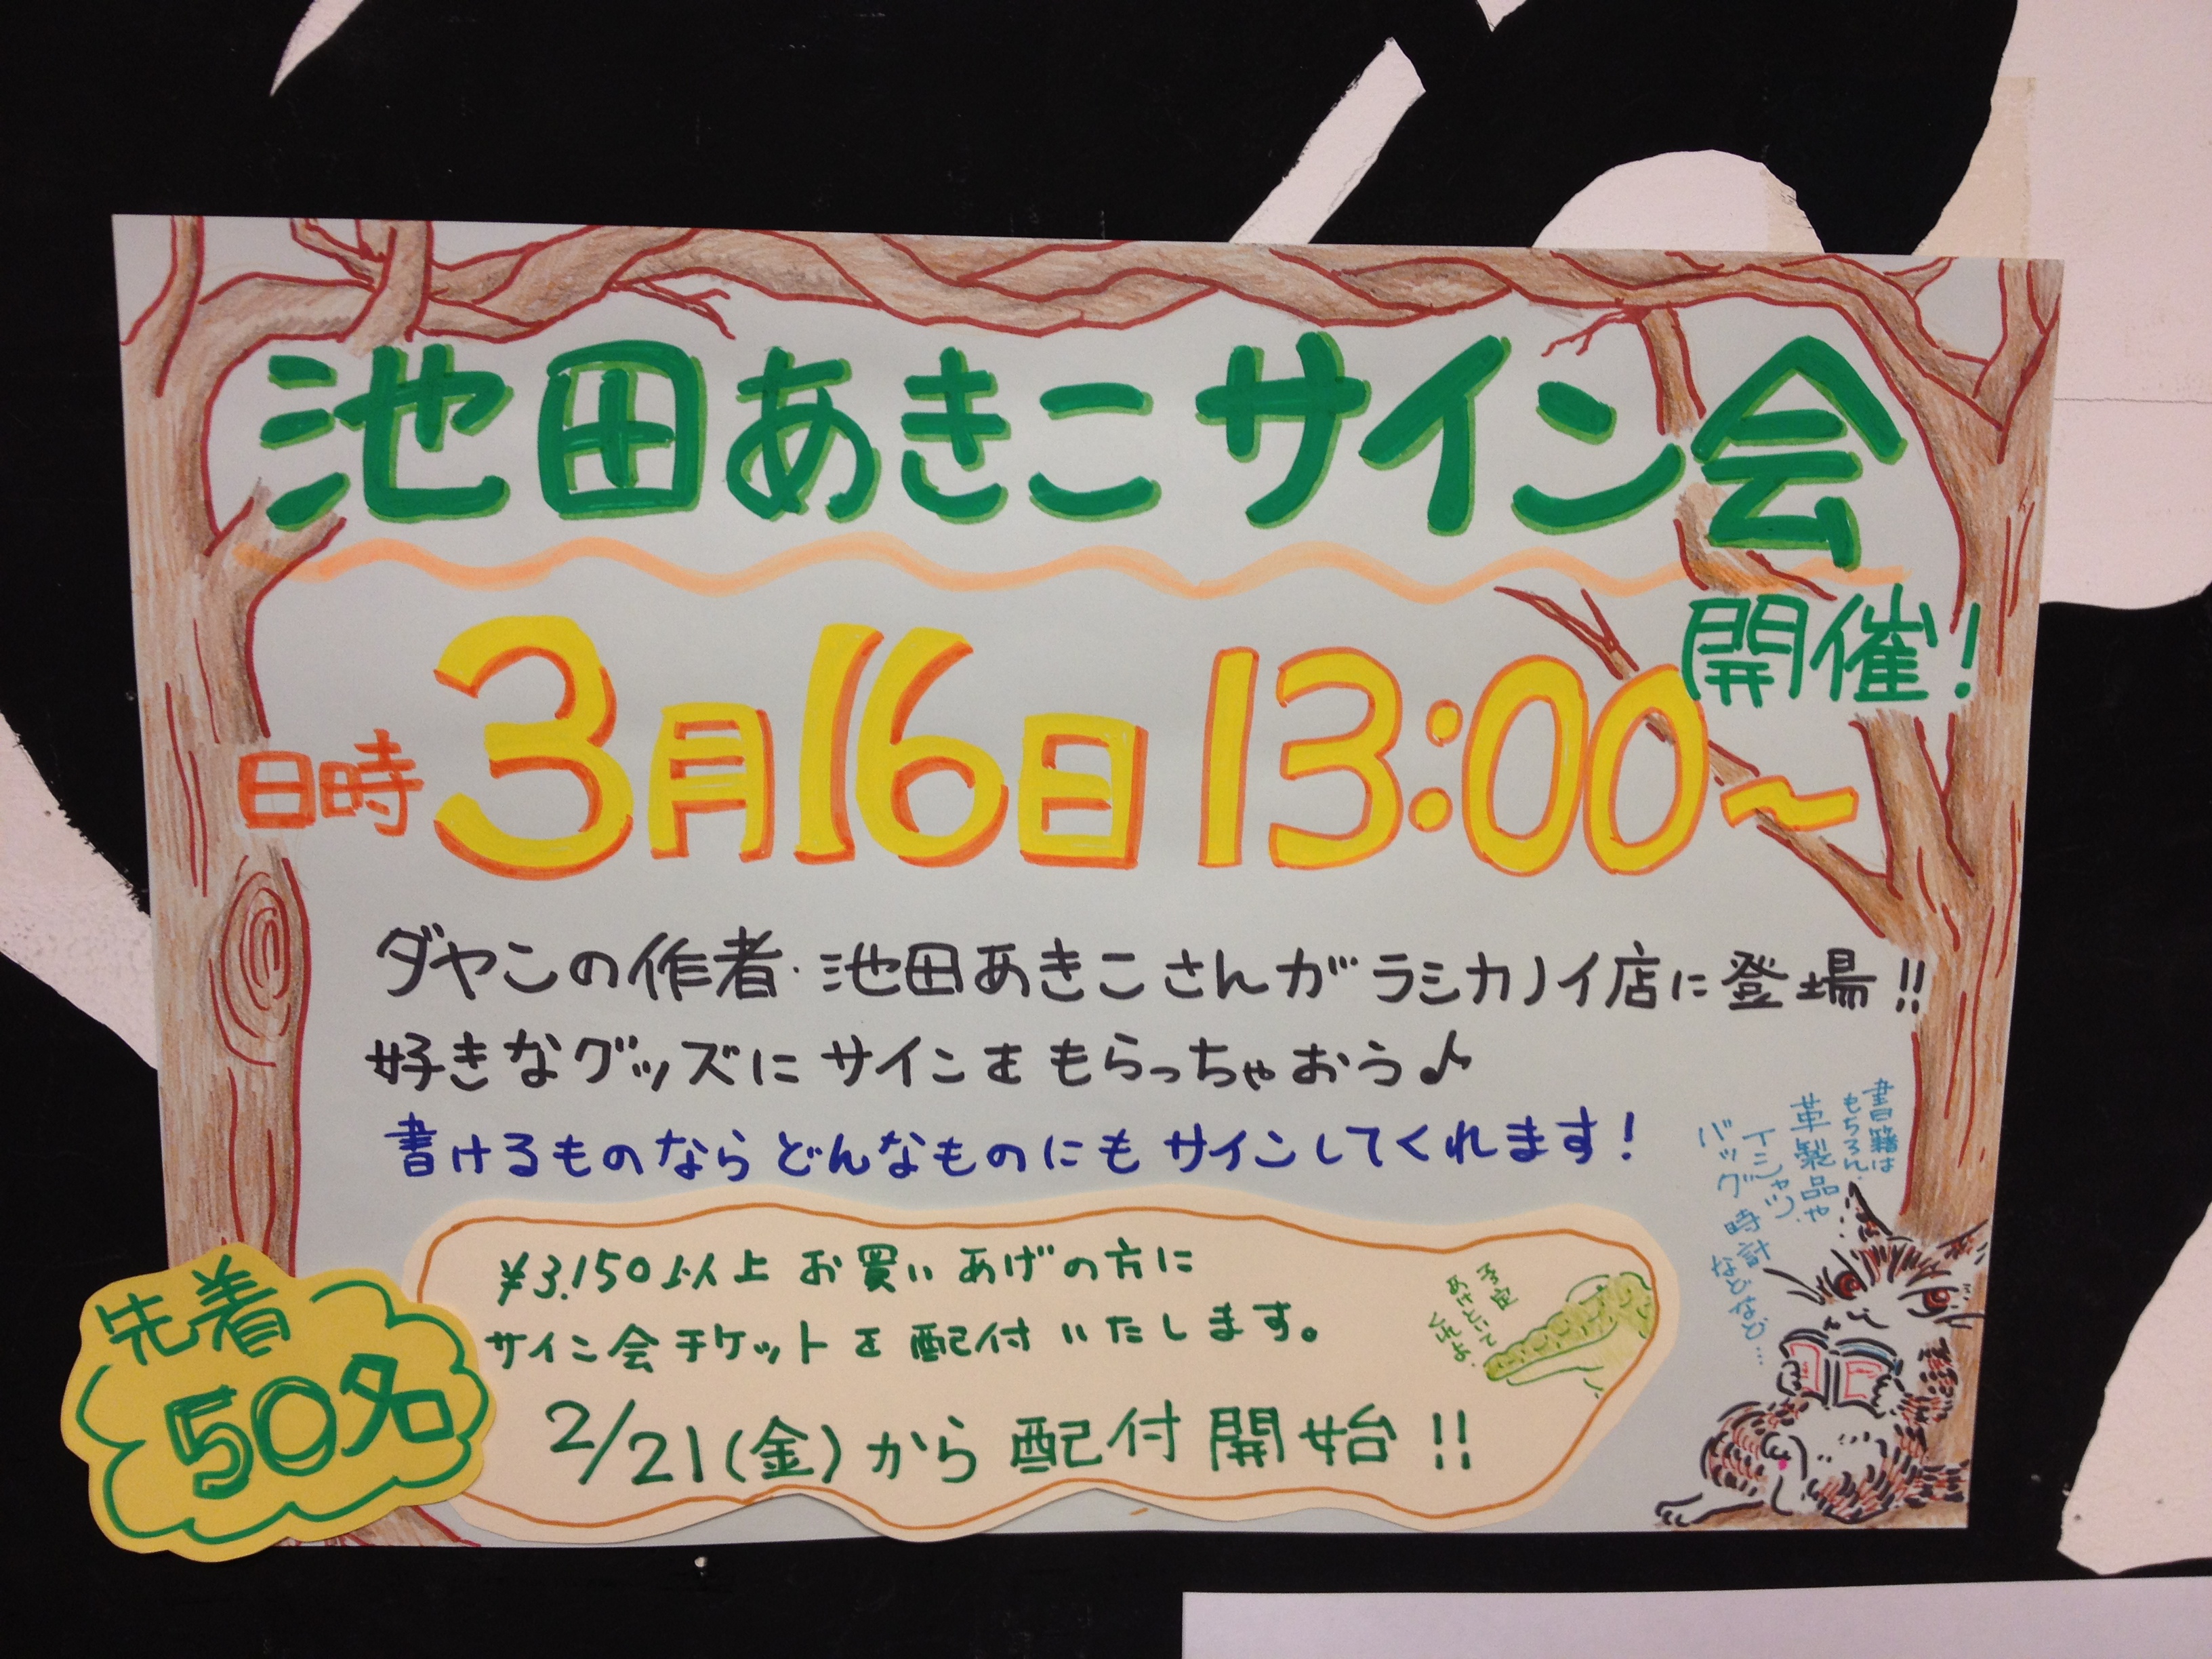 池田あきこサイン会
開催!
日時 3月16日 13:00～
ダヤンの作者・池田あきこさんがラシカノイ店に登場!!
好きなグッズにサインをもらっちゃおう♪
書けるものならどんなものにもサインしてくれます!
書籍は
もちろん、
革製品や
Tシャツ、
バッグ 時計
などなど…
¥3,150以上お買いあげの方に
サイン会チケットを配付いたします。
2/21(金)から配付開始!!
予定
あけといて
くれよ。
先着
50名